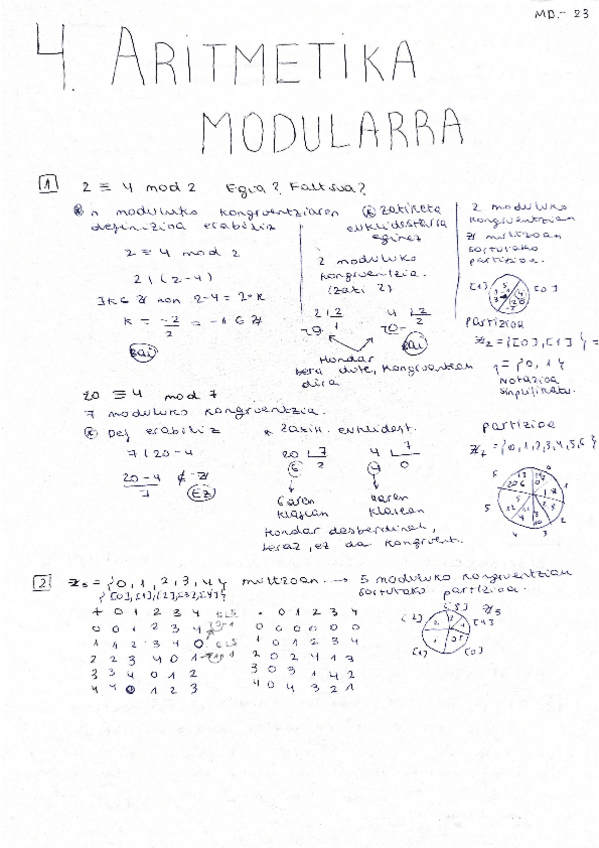 MD.- 23
4. ARITMETIKA
MODULARRA
1 2 ≡ 4 mod 2 Egia? Faltsua?
n moduluko kongruentziaren
definizioa erabiliz
2 ≡ 4 mod 2
2 | (2-4)
∃k ∈ Z non 2-4 = 2·k
k = -2/2 = -1 ∈ Z
bai
zatiketa
euklidestarra
eginez
2 moduluko
kongruentzia.
(zati 2)
2 | 2
0 1
4 | 2
0 2
bai
Hondar
bera dute, kongruenteak
dira
2 moduluko
kongruentziak
Z multzoan
sorturako
partizioa.
[1] [0]
partizioa
Z2 = {[0], [1]} =
= {0, 1}
Notazioa
sinplifikatu.
20 ≡ 4 mod 7
7 moduluko kongruentzia.
Def erabiliz
7 | 20-4
20-4 / 7 ∉ Z
EZ
zatik. euklidest.
20 | 7
6 2
4 | 7
4 0
6aren
klasean
4aren
klasean
Hondar desberdinak,
beraz, ez da kongruent.
partizioa
= {0,1,2,3,4,5,6}
2 = {0, 1, 2, 3, 4} multzoan. → 5 moduluko kongruentziak
sorturako partizioa.
{[0],[1],[2],[3],[4]}
+ 0 1 2 3 4
0 0 1 2 3 4
1 1 2 3 4 0
2 2 3 4 0 1
3 3 4 0 1 2
4 4 0 1 2 3
· 0 1 2 3 4
0 0 0 0 0 0
1 0 1 2 3 4
2 0 2 4 1 3
3 0 3 1 4 2
4 0 4 3 2 1
[3] Z5
[2] [4]
[1] [0]